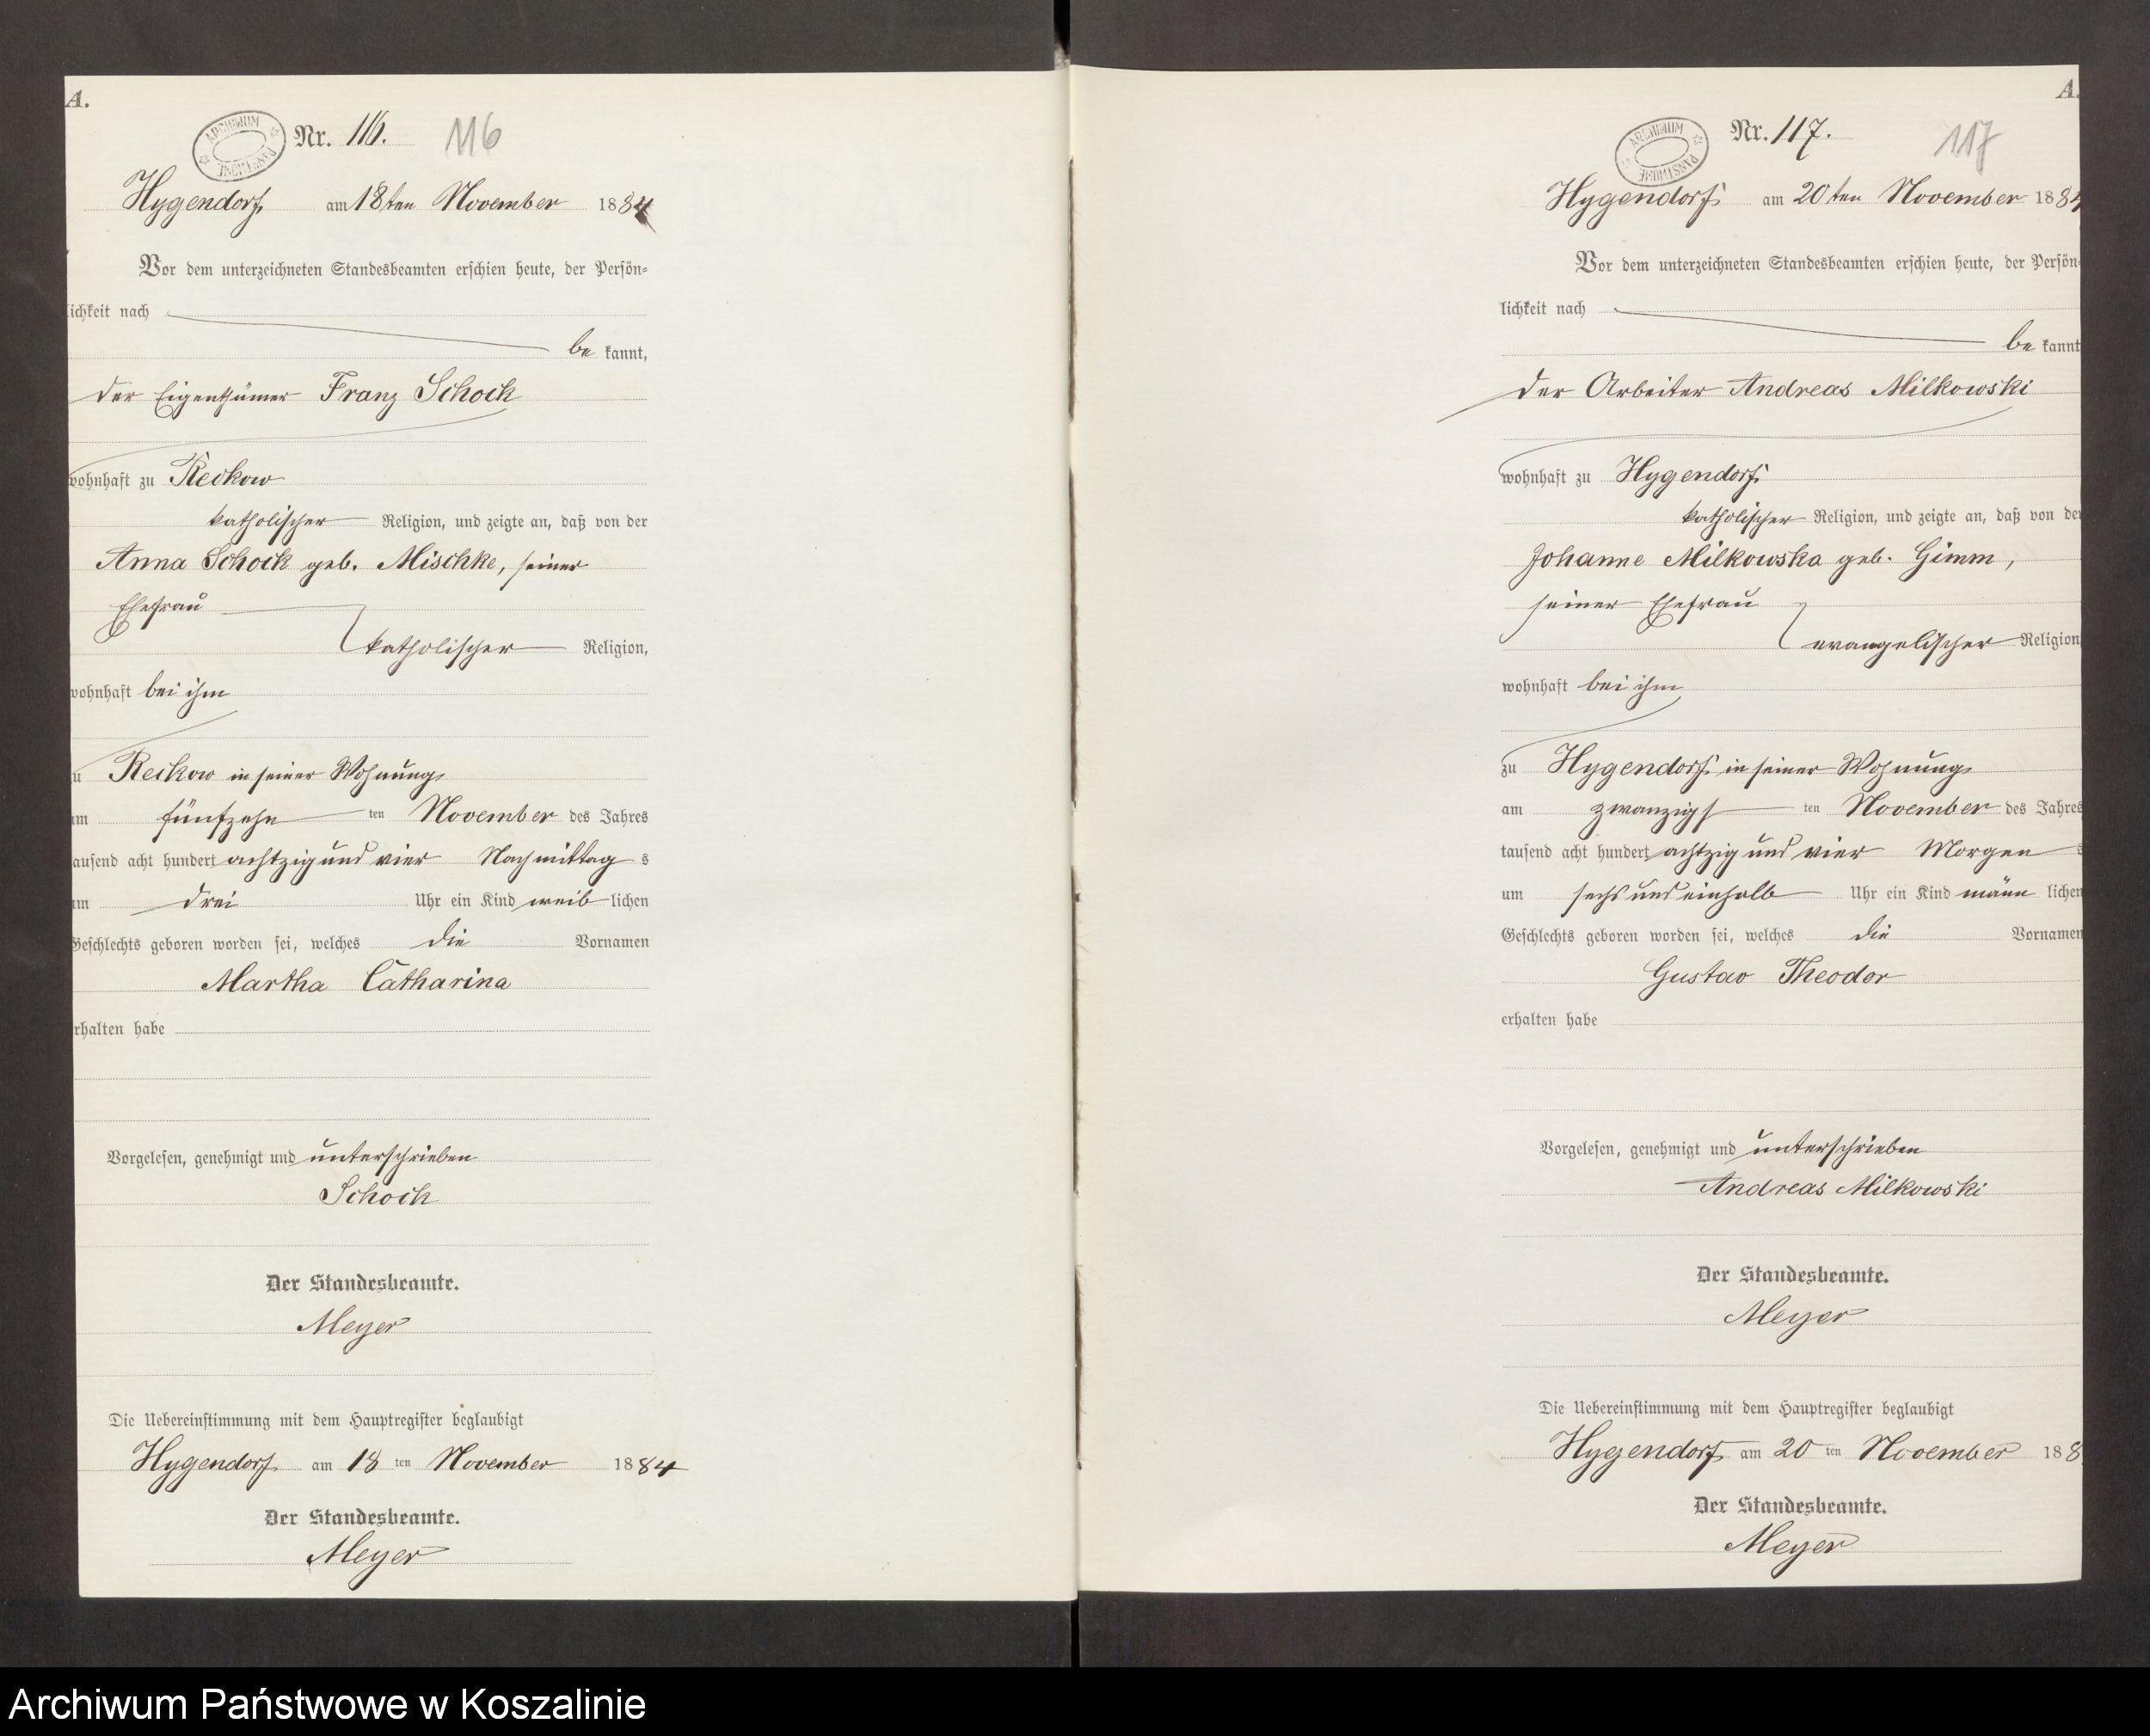 A.
ARCHIWUM PAŃSTWOWE
Nr. 116. 116
Hygendorf, am 18ten November 1884
Vor dem unterzeichneten Standesbeamten erschien heute, der Persön=
lichkeit nach
be kannt,
der Eigenthümer Franz Schock
wohnhaft zu Reckow
katholischer Religion, und zeigte an, daß von der
Anna Schock geb. Mischke, seiner
Ehefrau
katholischer Religion,
wohnhaft bei ihm
zu Reckow in seiner Wohnung,
am fünfzehn ten November des Jahres
tausend acht hundert achtzig und vier Nachmittag s
um drei Uhr ein Kind weib lichen
Geschlechts geboren worden sei, welches die Vornamen
Martha Catharina
erhalten habe
Vorgelesen, genehmigt und unterschrieben
Schock
Der Standesbeamte.
Meyer
Die Uebereinstimmung mit dem Hauptregister beglaubigt
Hygendorf am 18 ten November 1884
Der Standesbeamte.
Meyer
A.
ARCHIWUM PAŃSTWOWE
Nr. 117. 117
Hygendorf am 20ten November 1884
Vor dem unterzeichneten Standesbeamten erschien heute, der Persön
lichkeit nach
be kannt
der Arbeiter Andreas Milkowski
wohnhaft zu Hygendorf
katholischer Religion, und zeigte an, daß von der
Johanne Milkowska geb. Gimm,
seiner Ehefrau
evangelischer Religion
wohnhaft bei ihm
zu Hygendorf in seiner Wohnung,
am zwanzigs ten November des Jahres
tausend acht hundert achtzig und vier Morgen s
um sechs und einhalb Uhr ein Kind männ lichen
Geschlechts geboren worden sei, welches die Vornamen
Gustav Theodor
erhalten habe
Vorgelesen, genehmigt und unterschrieben
Andreas Milkowski
Der Standesbeamte.
Meyer
Die Uebereinstimmung mit dem Hauptregister beglaubigt
Hygendorf am 20 ten November 188
Der Standesbeamte.
Meyer
Archiwum Państwowe w Koszalinie